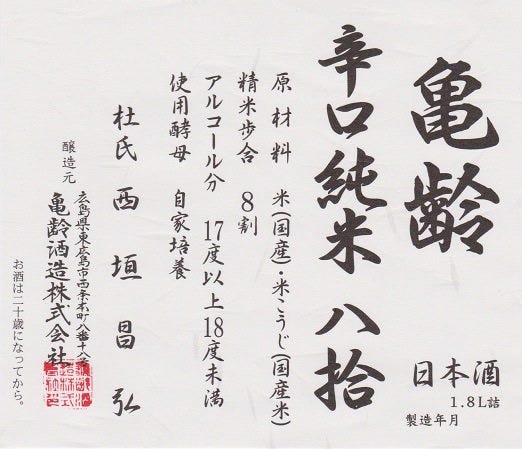 亀齢
日本酒
1.8L詰
製造年月
辛口純米 八拾
原材料 米(国産)・米こうじ(国産米)
精米歩合 8割
アルコール分 17度以上18度未満
使用酵母 自家培養
杜氏 西垣昌弘
醸造元
広島県東広島市西条本町八番十八号
亀齢酒造株式会社
お酒は二十歳になってから。